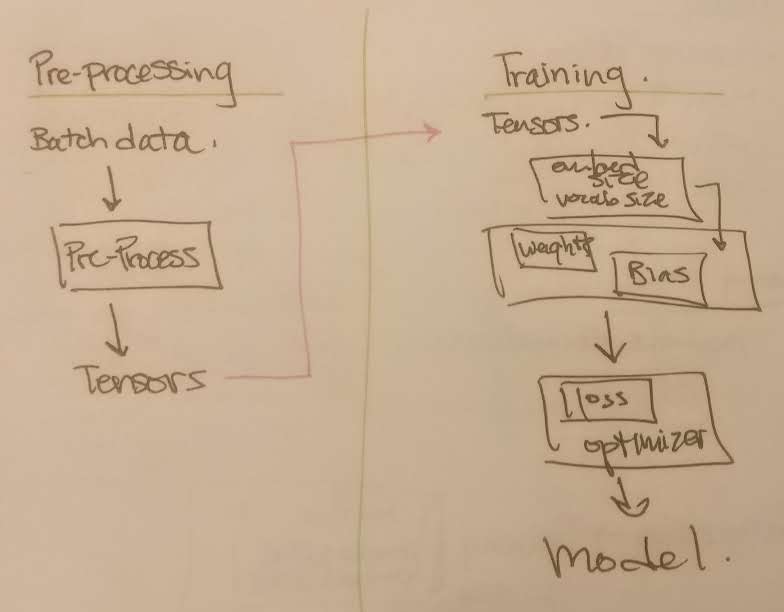 Pre-processing
Batch data.
Pre-Process
Tensors
Training.
Tensors.
embed
size
vocab size
weights
Bias
loss
optimizer
model.